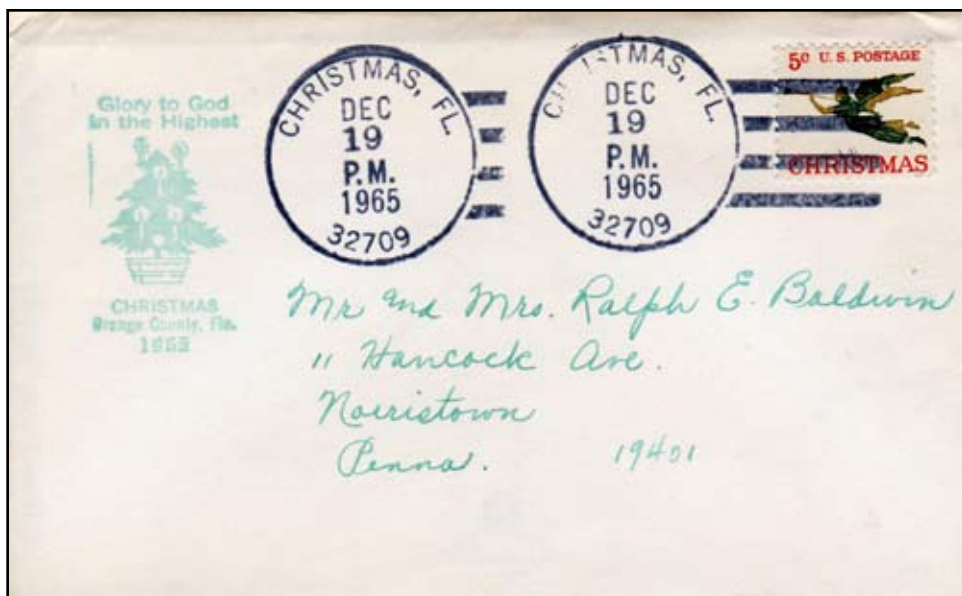 Glory to God
in the Highest
CHRISTMAS
Orange County, Fla.
1965
CHRISTMAS, FL.
DEC
19
P.M.
1965
32709
CHRISTMAS, FL.
DEC
19
P.M.
1965
32709
5c U.S. POSTAGE
CHRISTMAS
Mr and Mrs. Ralph E. Baldwin
11 Hancock Ave.
Norristown
Penna. 19401